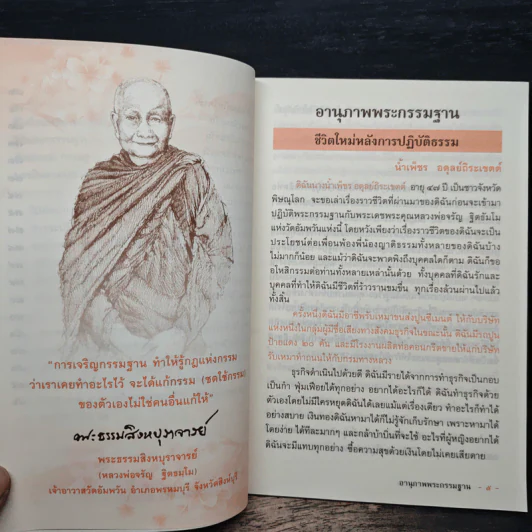 "การเจริญกรรมฐาน ทำให้รู้กฎแห่งกรรม
ว่าเราเคยทำอะไรไว้ จะได้แก้กรรม (ชดใช้กรรม)
ของตัวเองไม่ใช่คนอื่นแก้ให้"
พระธรรมสิงหบุราจารย์
พระธรรมสิงหบุราจารย์
(หลวงพ่อจรัญ ฐิตธมฺโม)
เจ้าอาวาสวัดอัมพวัน อำเภอพรหมบุรี จังหวัดสิงห์บุรี
อานุภาพพระกรรมฐาน
ชีวิตใหม่หลังการปฏิบัติธรรม
น้ำเพ็ชร อดุลย์ถิระเขตต์
ดิฉันนางน้ำเพ็ชร อดุลย์ถิระเขตต์ อายุ ๔๗ ปี เป็นชาวจังหวัด
พิษณุโลก จะขอเล่าเรื่องราวชีวิตที่ผ่านมาของดิฉันก่อนจะเข้ามา
ปฏิบัติพระกรรมฐานกับพระเดชพระคุณหลวงพ่อจรัญ ฐิตธมฺโม
แห่งวัดอัมพวันแห่งนี้ โดยหวังเพียงว่าเรื่องราวชีวิตของดิฉันจะเป็น
ประโยชน์ต่อเพื่อนพ้องพี่น้องญาติธรรมทั้งหลายของดิฉันบ้าง
ไม่มากก็น้อย และแม้ว่าดิฉันจะพาดพิงถึงบุคคลใดก็ตาม ดิฉันก็ขอ
อโหสิกรรมต่อท่านทั้งหลายเหล่านั้นด้วย ทั้งบุคคลที่ดิฉันรักและ
บุคคลที่ทำให้ดิฉันมีชีวิตที่ร้าวรานขมขื่น ทุกเรื่องล้วนผ่านไปแล้ว
ทั้งสิ้น
ครั้งหนึ่งดิฉันมีอาชีพรับเหมาขนส่งปูนซีเมนต์ ให้กับบริษัท
แห่งหนึ่งในกลุ่มผู้มีชื่อเสียงทางสังคมธุรกิจในขณะนั้น ดิฉันมีรถปูน
ป้ายแดง ๒๐ คัน และมีโรงงานผลิตท่อคอนกรีตขายให้แก่บริษัท
รับเหมาทำถนนให้กับกรมทางหลวง
ธุรกิจดำเนินไปด้วยดี ดิฉันมีรายได้จากการทำธุรกิจเป็นกอบ
เป็นกำ ฟุ่มเฟือยได้ทุกอย่าง อยากได้อะไรก็ได้ ดิฉันทำธุรกิจด้วย
ตัวเองโดยไม่มีใครหยุดดิฉันได้เลยแม้แต่เรื่องเดียว ทำอะไรก็ทำได้
อย่างสบาย เงินทองดิฉันหามาได้ก็ไม่รู้จักเก็บรักษา เพราะหามาได้
โดยง่าย ได้ทีละมากๆ และกล้าบ้าบิ่นที่จะใช้ อะไรที่ผู้หญิงอยากได้
ดิฉันจะมีแทบทุกอย่าง ซื้อความสุขด้วยเงินโดยไม่เคยเสียดาย
อานุภาพพระกรรมฐาน